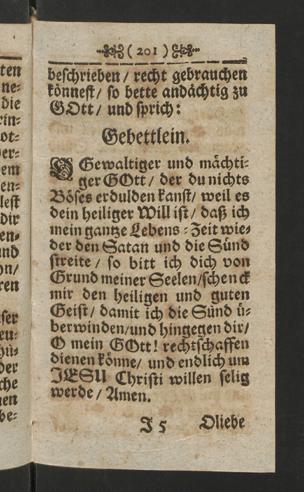 ( 201 )
beschrieben / recht gebrauchen
könnest / so bette andächtig zu
GOtt / und sprich:
Gebettlein.
O Gewaltiger und mächti-
ger GOtt / der du nichts
Böses erdulden kanst / weil es
dein heiliger Will ist / daß ich
mein gantze Lebens-Zeit wie-
der den Satan und die Sünd
streite / so bitt ich dich von
Grund meiner Seelen / schenck
mir den heiligen und guten
Geist / damit ich die Sünd ü-
berwinden / und hingegen dir /
O mein GOtt! rechtschaffen
dienen könne / und endlich um
JESU Christi willen selig
werde / Amen.
J 5 Oliebe
ten
ne-
die
rin-
ot-
er-
em
en-
lest
dir
en-
und
hn /
ren
ser
eu-
hü-
der
che
nen
be-